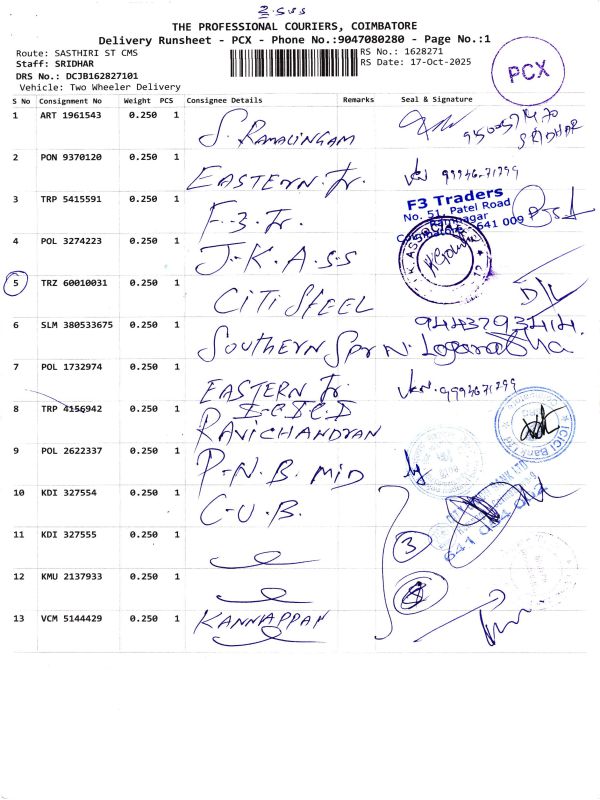 THE PROFESSIONAL COURIERS, COIMBATORE
Delivery Runsheet - PCX - Phone No.:9047080280 - Page No.:1
Route: SASTHIRI ST CMS
RS No.: 1628271
Staff: SRIDHAR
RS Date: 17-Oct-2025
DRS No.: DCJB162827101
Vehicle: Two Wheeler Delivery
PCX
S No Consignment No Weight PCS Consignee Details Remarks Seal & Signature
1 ART 1961543 0.250 1 S. RAMALINGAM
SRIDHAR
2 PON 9370120 0.250 1 EASTERN Tr.
3 TRP 5415591 0.250 1 F-3-Tr.
F3 Traders
No. 51, Patel Road
Ramnagar
Coimbatore - 641 009
4 POL 3274223 0.250 1 J-K.A.S.S
5 TRZ 60010031 0.250 1 CITI STEEL
D/L
6 SLM 380533675 0.250 1 SOUTHERN Spr N. Loganatha
7 POL 1732974 0.250 1 EASTERN Tr.
8 TRP 4156942 0.250 1 RAVICHANDRAN
ICICI Bank Ltd
9 POL 2622337 0.250 1 P-N.B. MID
10 KDI 327554 0.250 1 C-U.B.
11 KDI 327555 0.250 1
3
12 KMU 2137933 0.250 1
13 VCM 5144429 0.250 1 KANNAPPAN